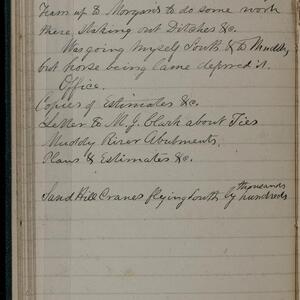 Team up to Morgan's to do some work
there, Staking out Ditches &c.
Was going myself South & to Muddy,
but horse being Lame deferred it.
Office.
Copies of Estimates &c.
Letter to M. J. Clark about Ties
Muddy River Abutments,
Plans & Estimates &c.
thousands
Sand Hill Cranes flying South by hundreds